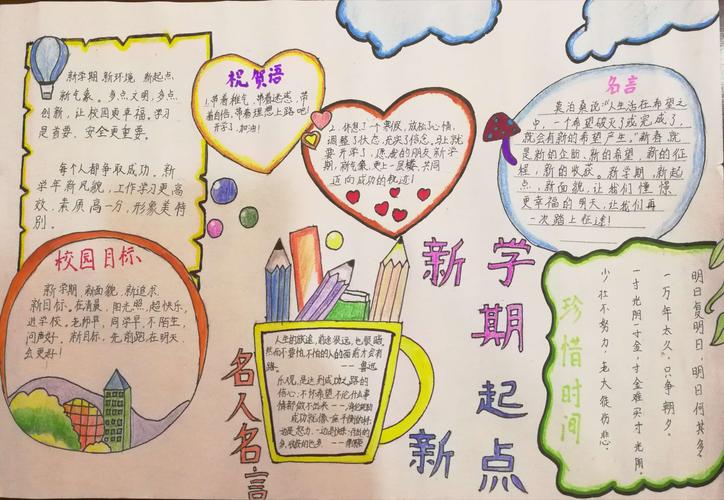 新学期，新环境，新起点，
新气象。多点文明，多点
创新，让校园更幸福。学习
是首要，安全更重要。
每个人都争取成功，新
学年新风貌，工作学习更高
效，素质高一分，形象美特
别。
祝贺语
1.带着稚气，带着迷惑，带
着自信，带着理想上路吧！
开学了，加油！
2.休息了一个寒假，放松了心情，
调整了状态，充实了信念。马上就
要开学了，愿我的朋友新学
期，新气象，更上一层楼，共同
迈向成功的征途！
名言
莫泊桑说“人生活在希望之
中，一个希望破灭了或完成了，
就会有新的希望产生。”新春就
是新的企盼、新的希望，新的征
程，新的收获。新学期，新起
点，新面貌，让我们憧憬
更幸福的明天，让我们再
一次踏上征途！
校园目标
新学期，新面貌，新追求
新目标。在清晨，阳光照，超快乐，
进学校。老师早，同学早，不陌生，
问声好。新目标，先前跑，在明天
会更好！
名人名言
人生的旅途，前途很远，也很暗。
然而不要怕，不怕的人的面前才会有
路。——鲁迅
乐观，是达到成功之路的
信心；不怀希望，不论什么事
情都做不出来——海伦凯勒
成功就像一座
新学期
新起点
珍惜时间
明日复明日，明日何其多？
一万年太久，只争朝夕。
一寸光阴一寸金，寸金难买寸光阴。
少壮不努力，老大徒伤悲。